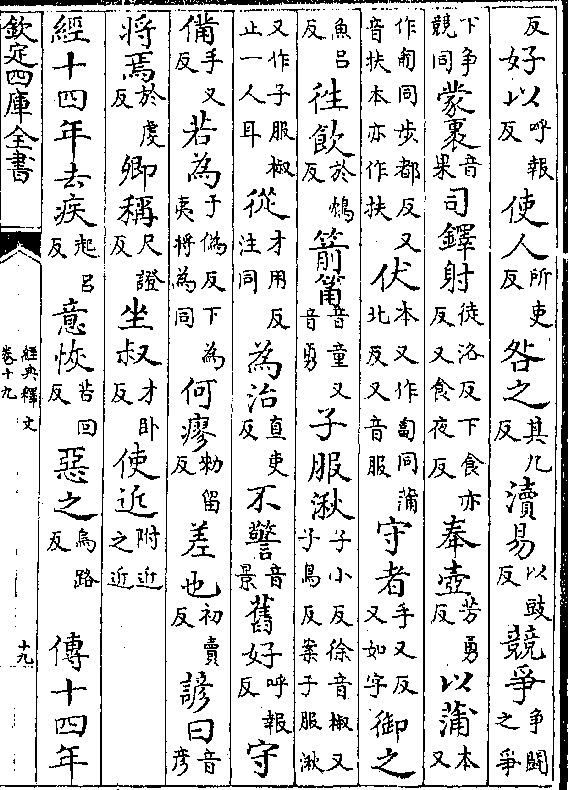 反好以呼報反使人所吏反咎之其九反瀆易以豉反競爭爭鬭之爭
下争競同蒙裹音果司鐸射徒洛反下食亦反又食夜反奉壺芳勇反以蒲本又
作匍同步都反又音扶本亦作扶伏本又作匐同蒲北反又音服守者手又反又如字御之
魚呂反徃飲於鴆反箭筩音童又音勇子服湫子小反徐音椒又子鳥反案子服湫
又作子服椒止一人耳從才用反注同為治直吏反不警音景舊好呼報反守
備手又反若為于偽反下為夷將為同何瘳勑留反差也初賣反諺曰音彥
將焉於虔反卿稱尺證反坐叔才卧反使近附近之近
經十四年去疾起呂反意恢苦回反惡之烏路反傳十四年
欽定四庫全書
經典釋文
卷十九
十九